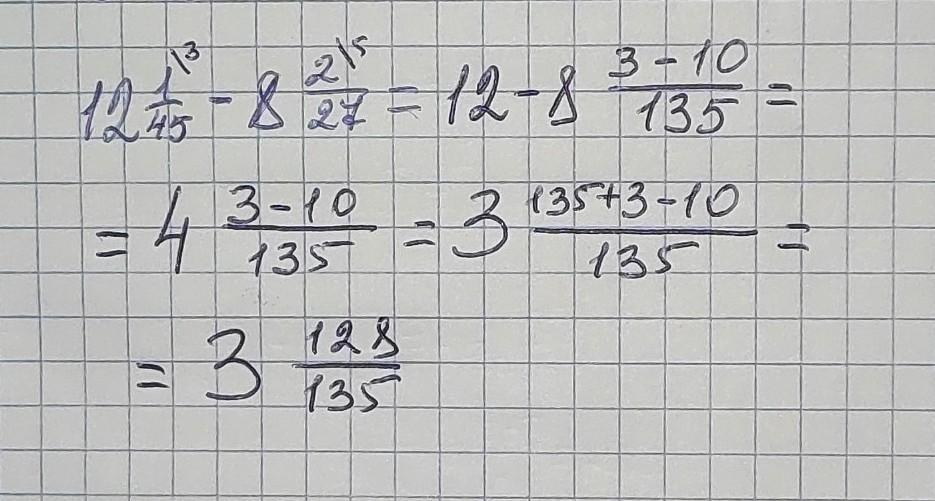 12 1\3/45 - 8 2\5/27 = 12-8 3-10/135 =
= 4 3-10/135 = 3 135+3-10/135 =
= 3 128/135